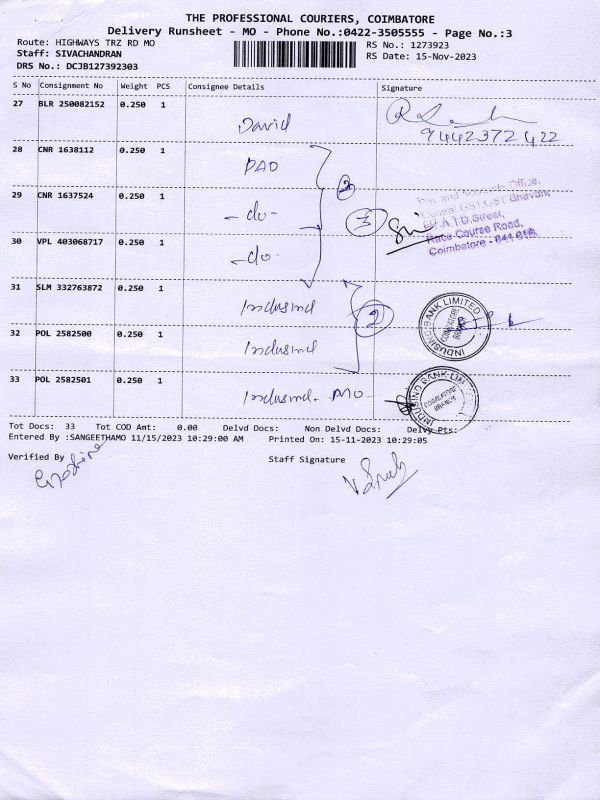 THE PROFESSIONAL COURIERS, COIMBATORE
Delivery Runsheet - MO - Phone No.:0422-3505555 - Page No.:3
Route: HIGHWAYS TRZ RD MO
RS No.: 1273923
Staff: SIVACHANDRAN
RS Date: 15-Nov-2023
DRS No.: DCJB127392303
S No Consignment No Weight PCS Consignee Details Signature
27 BLR 250082152 0.250 1 David
9442372422
28 CNR 1638112 0.250 1 PAO
29 CNR 1637524 0.250 1 - do -
3
Race Course Road,
Coimbatore - 641 018.
30 VPL 403068717 0.250 1 - do -
31 SLM 332763872 0.250 1 Indusind
2
INDUSIND BANK LIMITED
COIMBATORE BRANCH
32 POL 2582500 0.250 1 Indusind
33 POL 2582501 0.250 1 Indusind - MO -
INDUSIND BANK LIMITED
COIMBATORE BRANCH
Tot Docs: 33 Tot COD Amt: 0.00 Delvd Docs: Non Delvd Docs: Delvy Pts:
Entered By :SANGEETHAMO 11/15/2023 10:29:00 AM Printed On: 15-11-2023 10:29:05
Verified By Staff Signature